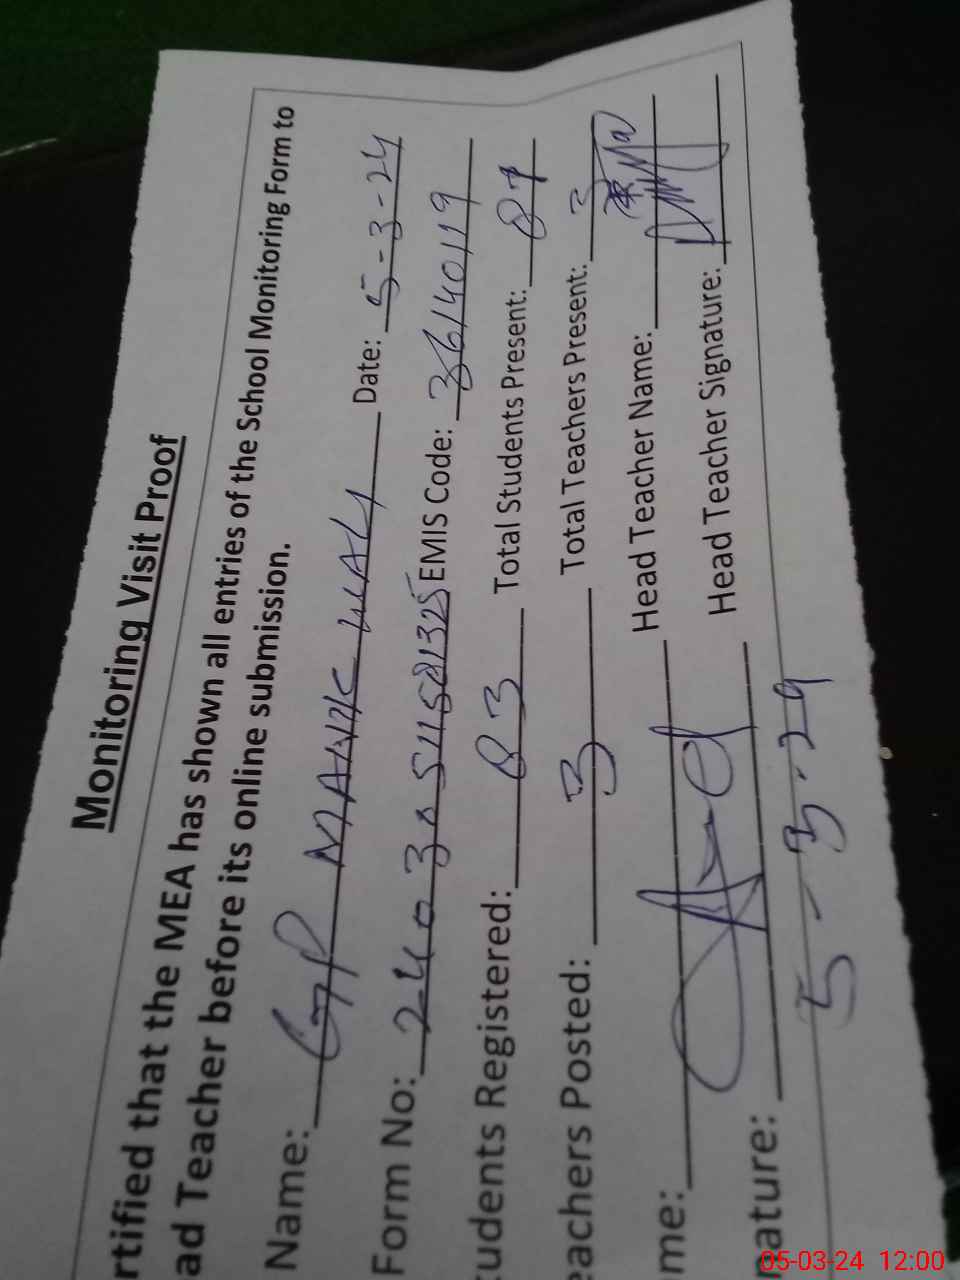 Monitoring Visit Proof
rtified that the MEA has shown all entries of the School Monitoring Form to
ad Teacher before its online submission.
Name: GPS MANK WALI Date: 5-3-24
Form No: 24030511581325 EMIS Code: 36140119
tudents Registered: 83 Total Students Present:
eachers Posted: 3 Total Teachers Present: 3
me: Head Teacher Name:
nature: Head Teacher Signature:
5-3-24
05-03-24 12:00